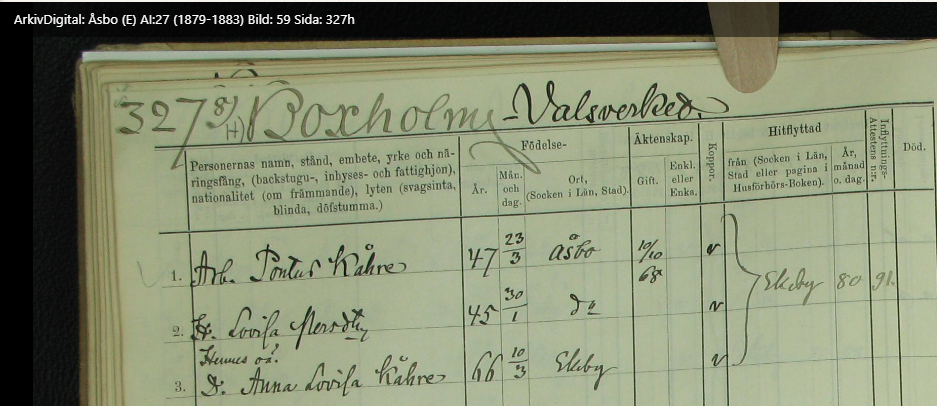 ArkivDigital: Åsbo (E) AI:27 (1879-1883) Bild: 59 Sida: 327h
327 8/ H) Boxholms - Valsverket.
Personernas namn, stånd, embete, yrke och näringsfång, (backstugu-, inhyses- och fattighjon), nationalitet (om främmande), lyten (svagsinta, blinda, döfstumma.)
Födelse-
År.
Mån. och dag.
Ort, (Socken i Län, Stad).
Äktenskap.
Gift.
Enkl. eller Enka.
Koppor.
Hitflyttad
från (Socken i Län, Stad eller pagina i Husförhörs-Boken).
År, månad o. dag.
Inflyttnings-Attestens n:r.
Död.
1. Arb. Pontus Kåhre 47 23/3 Åsbo 10/10 68 v
2. H. Lovisa Persdtr 45 30/1 do v Ekeby 80 91.
Hennes oä?
3. D. Anna Lovisa Kåhre 66 10/3 Ekeby v